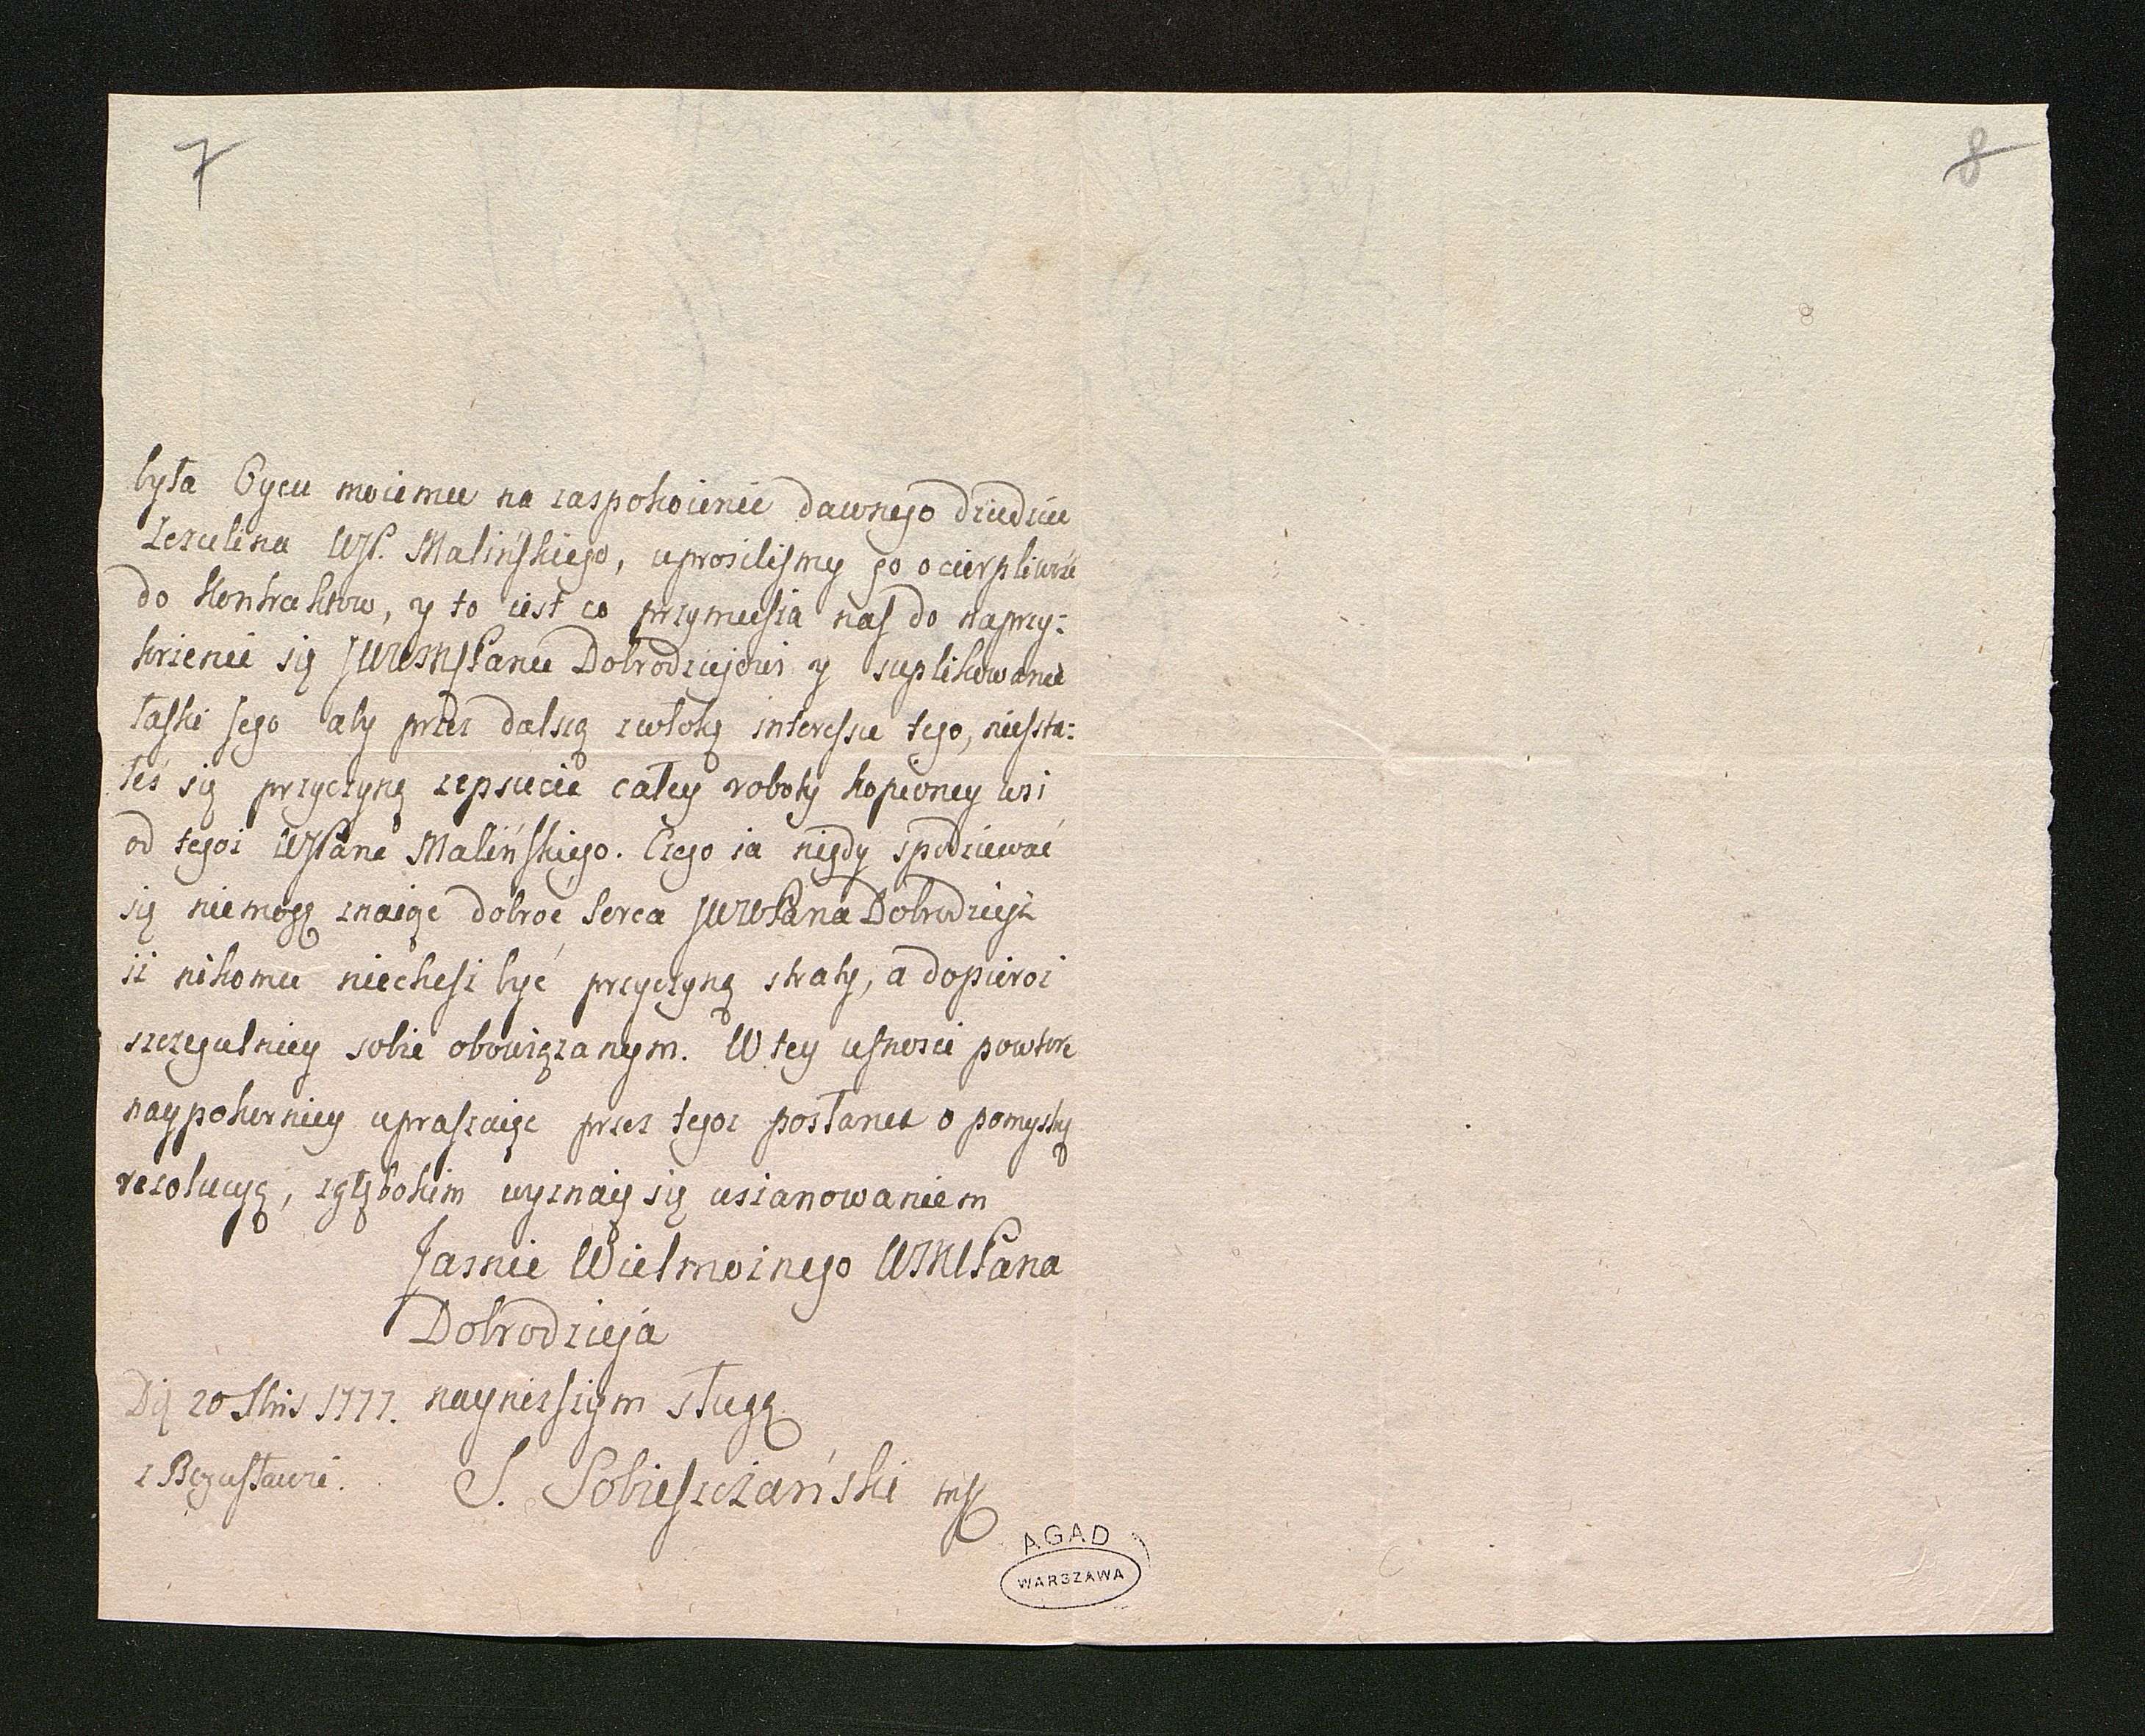 7
8
była Oycu moiemu na zaspokoienie dawnego dziedzica
Jezulina WJP. Malińskiego, uprosiliśmy go o cierpliwość
do Kontraktow, y to iest co przymusza nas do naprzy:
krzenie się JWWMPanu Dobrodziejowi y suplikowanie
łaski Jego aby przez dalszą zwłokę interessu tego, niesta:
łeś się przyczyną zepsucia całey roboty kopioney wsi
od tegoz WJPana Malińskiego. Czego ia nigdy spodziewać
się niemogę znaiąc dobroć serca JWWPana Dobrodzieja
iż nikomu niechesz być przyczyną straty, a dopieroz
szczegulniey sobie obowiązanym. W tey ufności powtore
naypokorniey upraszaiąc przez tegoz posłanca o pomyslną
rezolucyą, z głębokim wyznaię się uszanowaniem
Jasnie Wielmoznego WMPana
Dobrodzieja
Dią 20 1777. nayniższym sługą
z Bogusławia.
S. Sobieszczański mp
AGAD
WARSZAWA